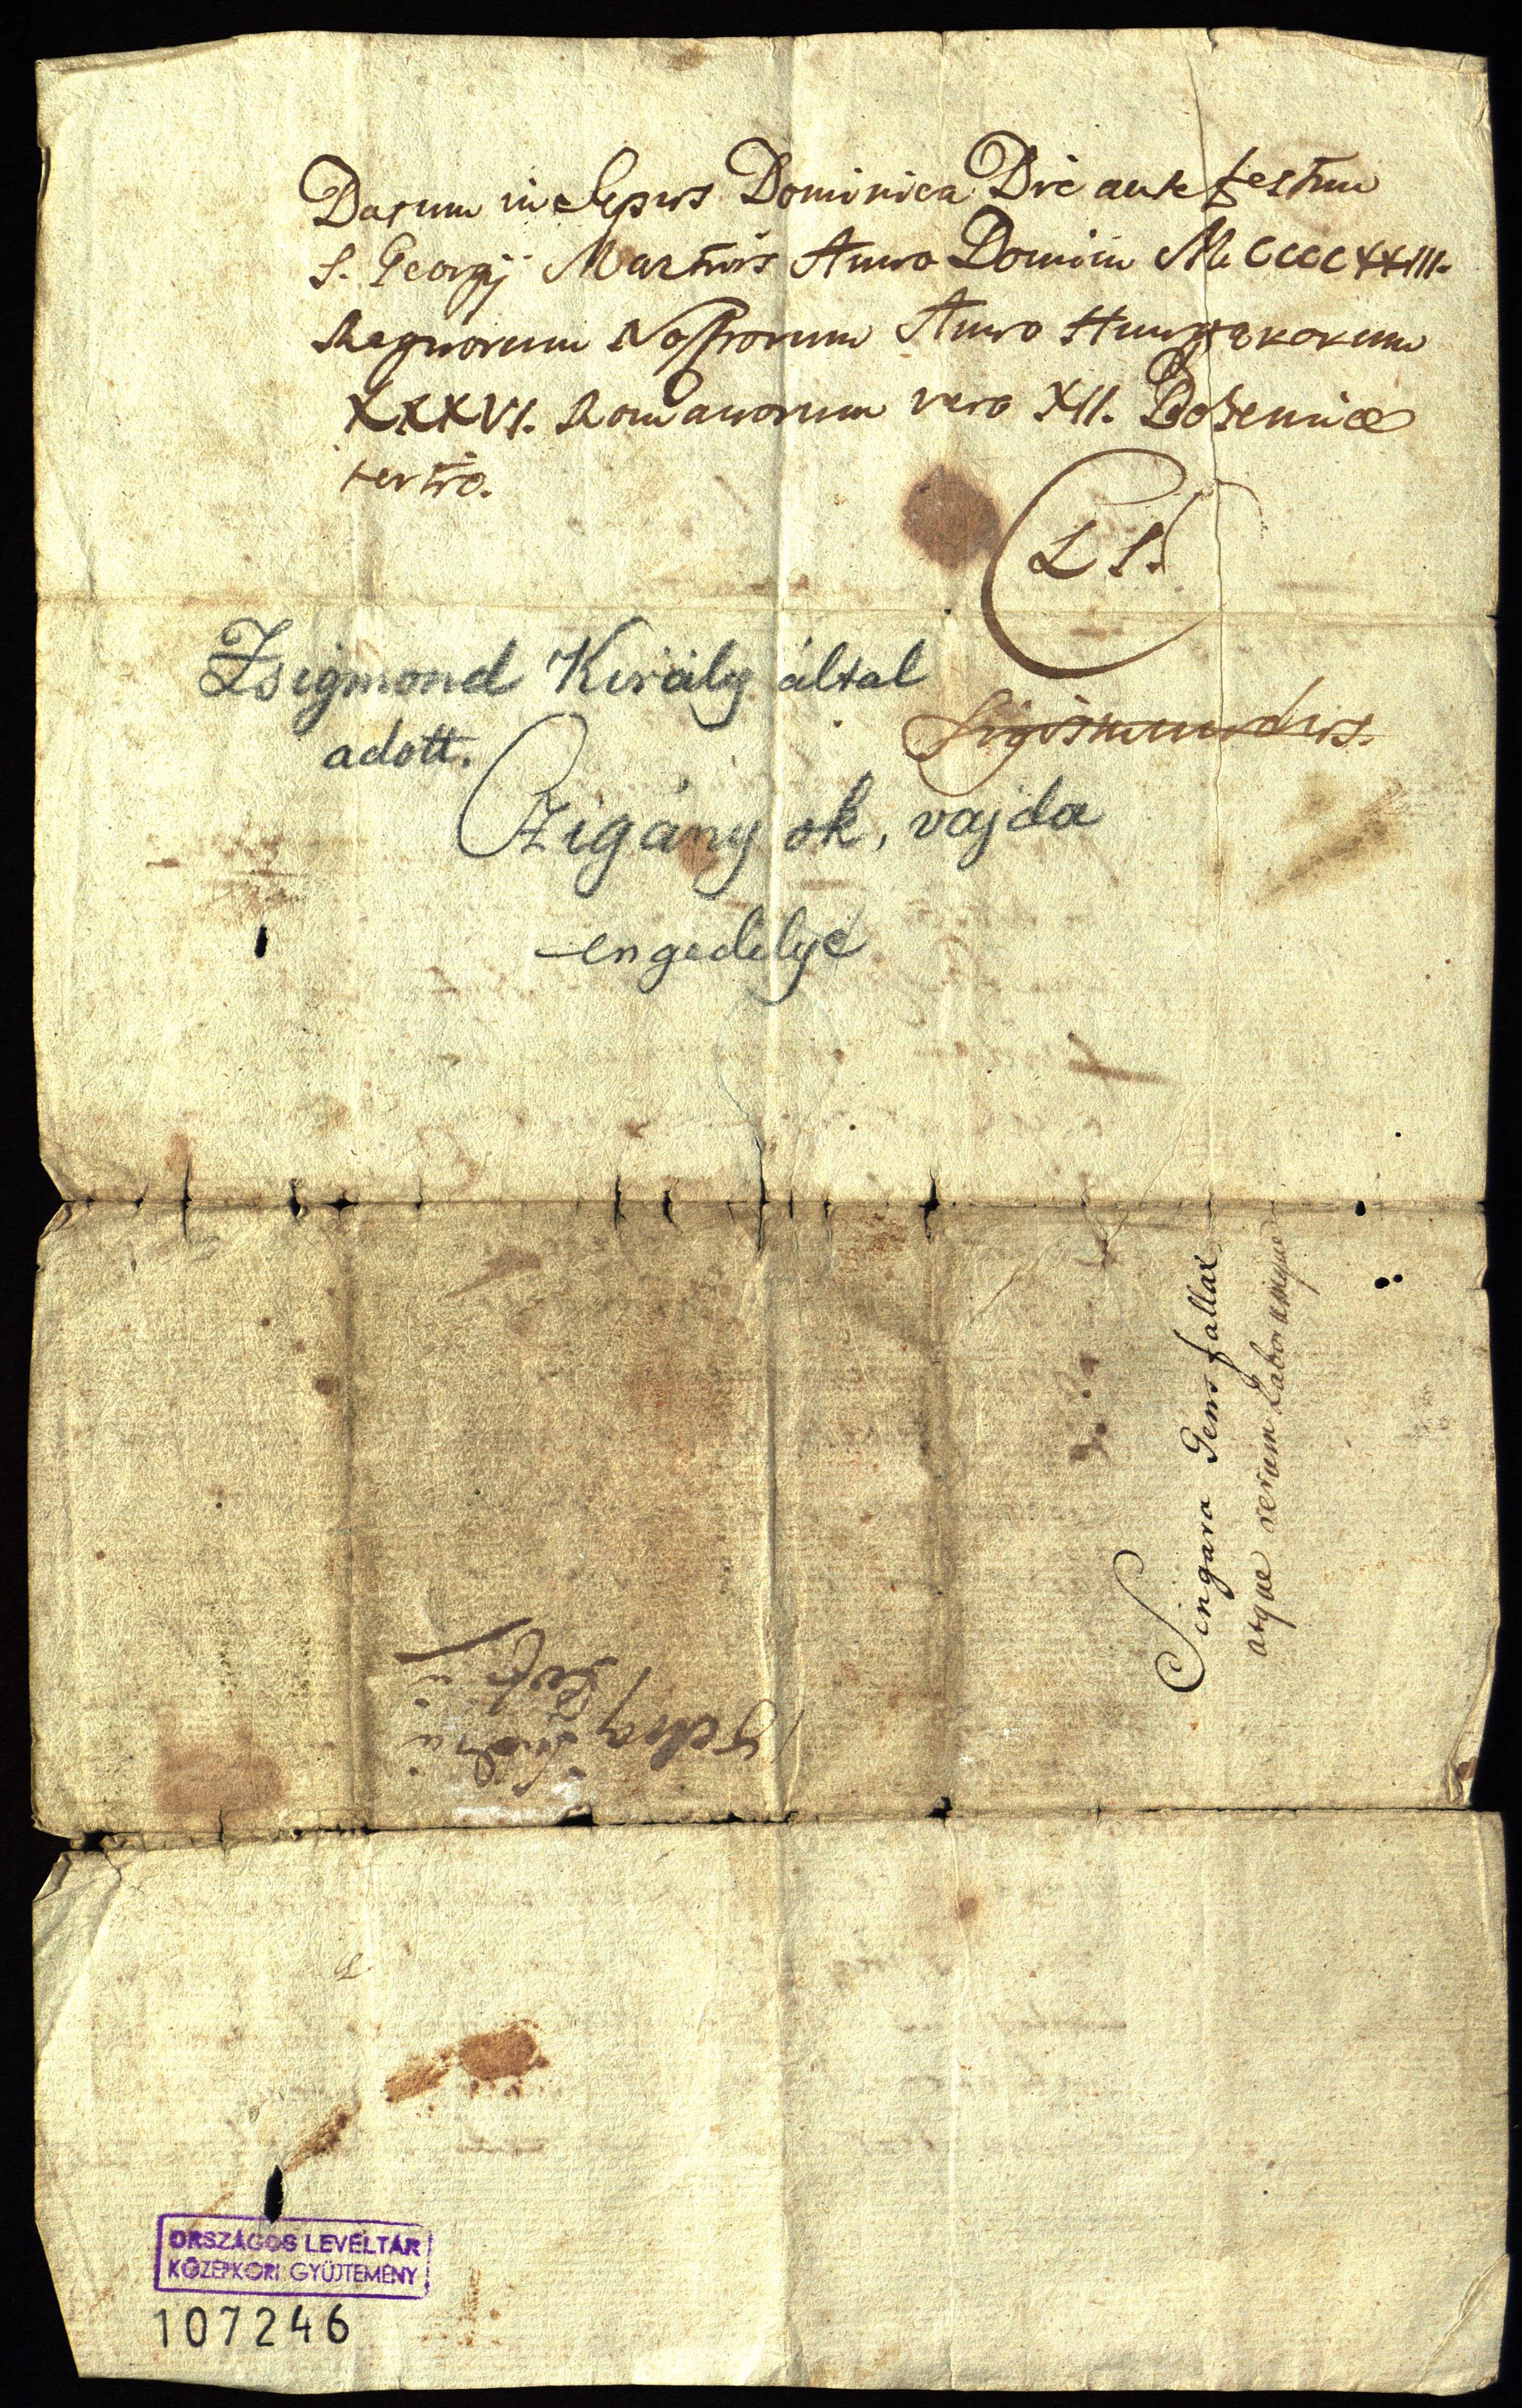 Datum in Sepus Dominica Die ante festum
S. Georgÿ Martiris Anno Domini MCCCCXXIII.
Regnorum Nostrorum Anno Hungarorum
XXXVI. Romanorum vero XII. Bohemiae
tertio.
L S.
Sigismundus.
Zsigmond Király által
adott.
Czigány ok, vajda
engedélye
Singara Gens fallax
atque rerum Laborumque
ORSZÁGOS LEVÉLTÁR
KÖZÉPKORI GYŰJTEMÉNY
107246